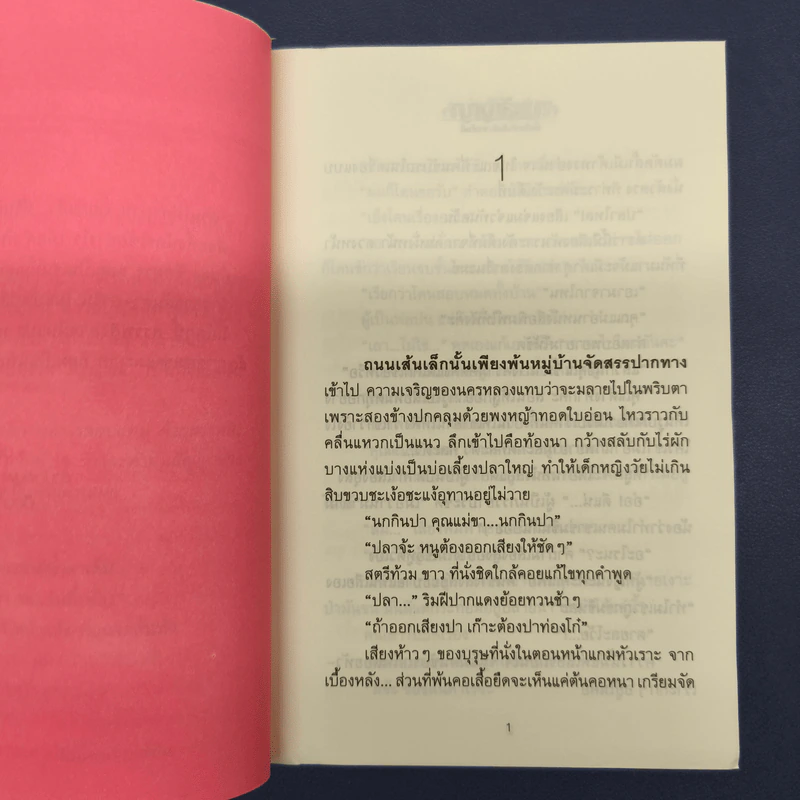 1
ถนนเส้นเล็กนั้นเพียงพ้นหมู่บ้านจัดสรรปากทาง
เข้าไป ความเจริญของนครหลวงแทบว่าจะมลายไปในพริบตา
เพราะสองข้างปกคลุมด้วยพงหญ้าทอดใบอ่อน ไหวราวกับ
คลื่นแหวกเป็นแนว ลึกเข้าไปคือท้องนา กว้างสลับกับไร่ผัก
บางแห่งแบ่งเป็นบ่อเลี้ยงปลาใหญ่ ทำให้เด็กหญิงวัยไม่เกิน
สิบขวบชะเง้อชะแง้อุทานอยู่ไม่วาย
“นกกินปา คุณแม่ขา...นกกินปา”
“ปลาจ้ะ หนูต้องออกเสียงให้ชัดๆ”
สตรีท้วม ขาว ที่นั่งชิดใกล้คอยแก้ไขทุกคำพูด
“ปลา...” ริมฝีปากแดงย้อยทวนช้าๆ
“ถ้าออกเสียงปา เก๊าะต้องปาท่องโก๋”
เสียงห้าวๆ ของบุรุษที่นั่งในตอนหน้าแกมหัวเราะ จาก
เบื้องหลัง... ส่วนที่พ้นคอเสื้อยืดจะเห็นแค่ต้นคอหนา เกรียมจัด
1